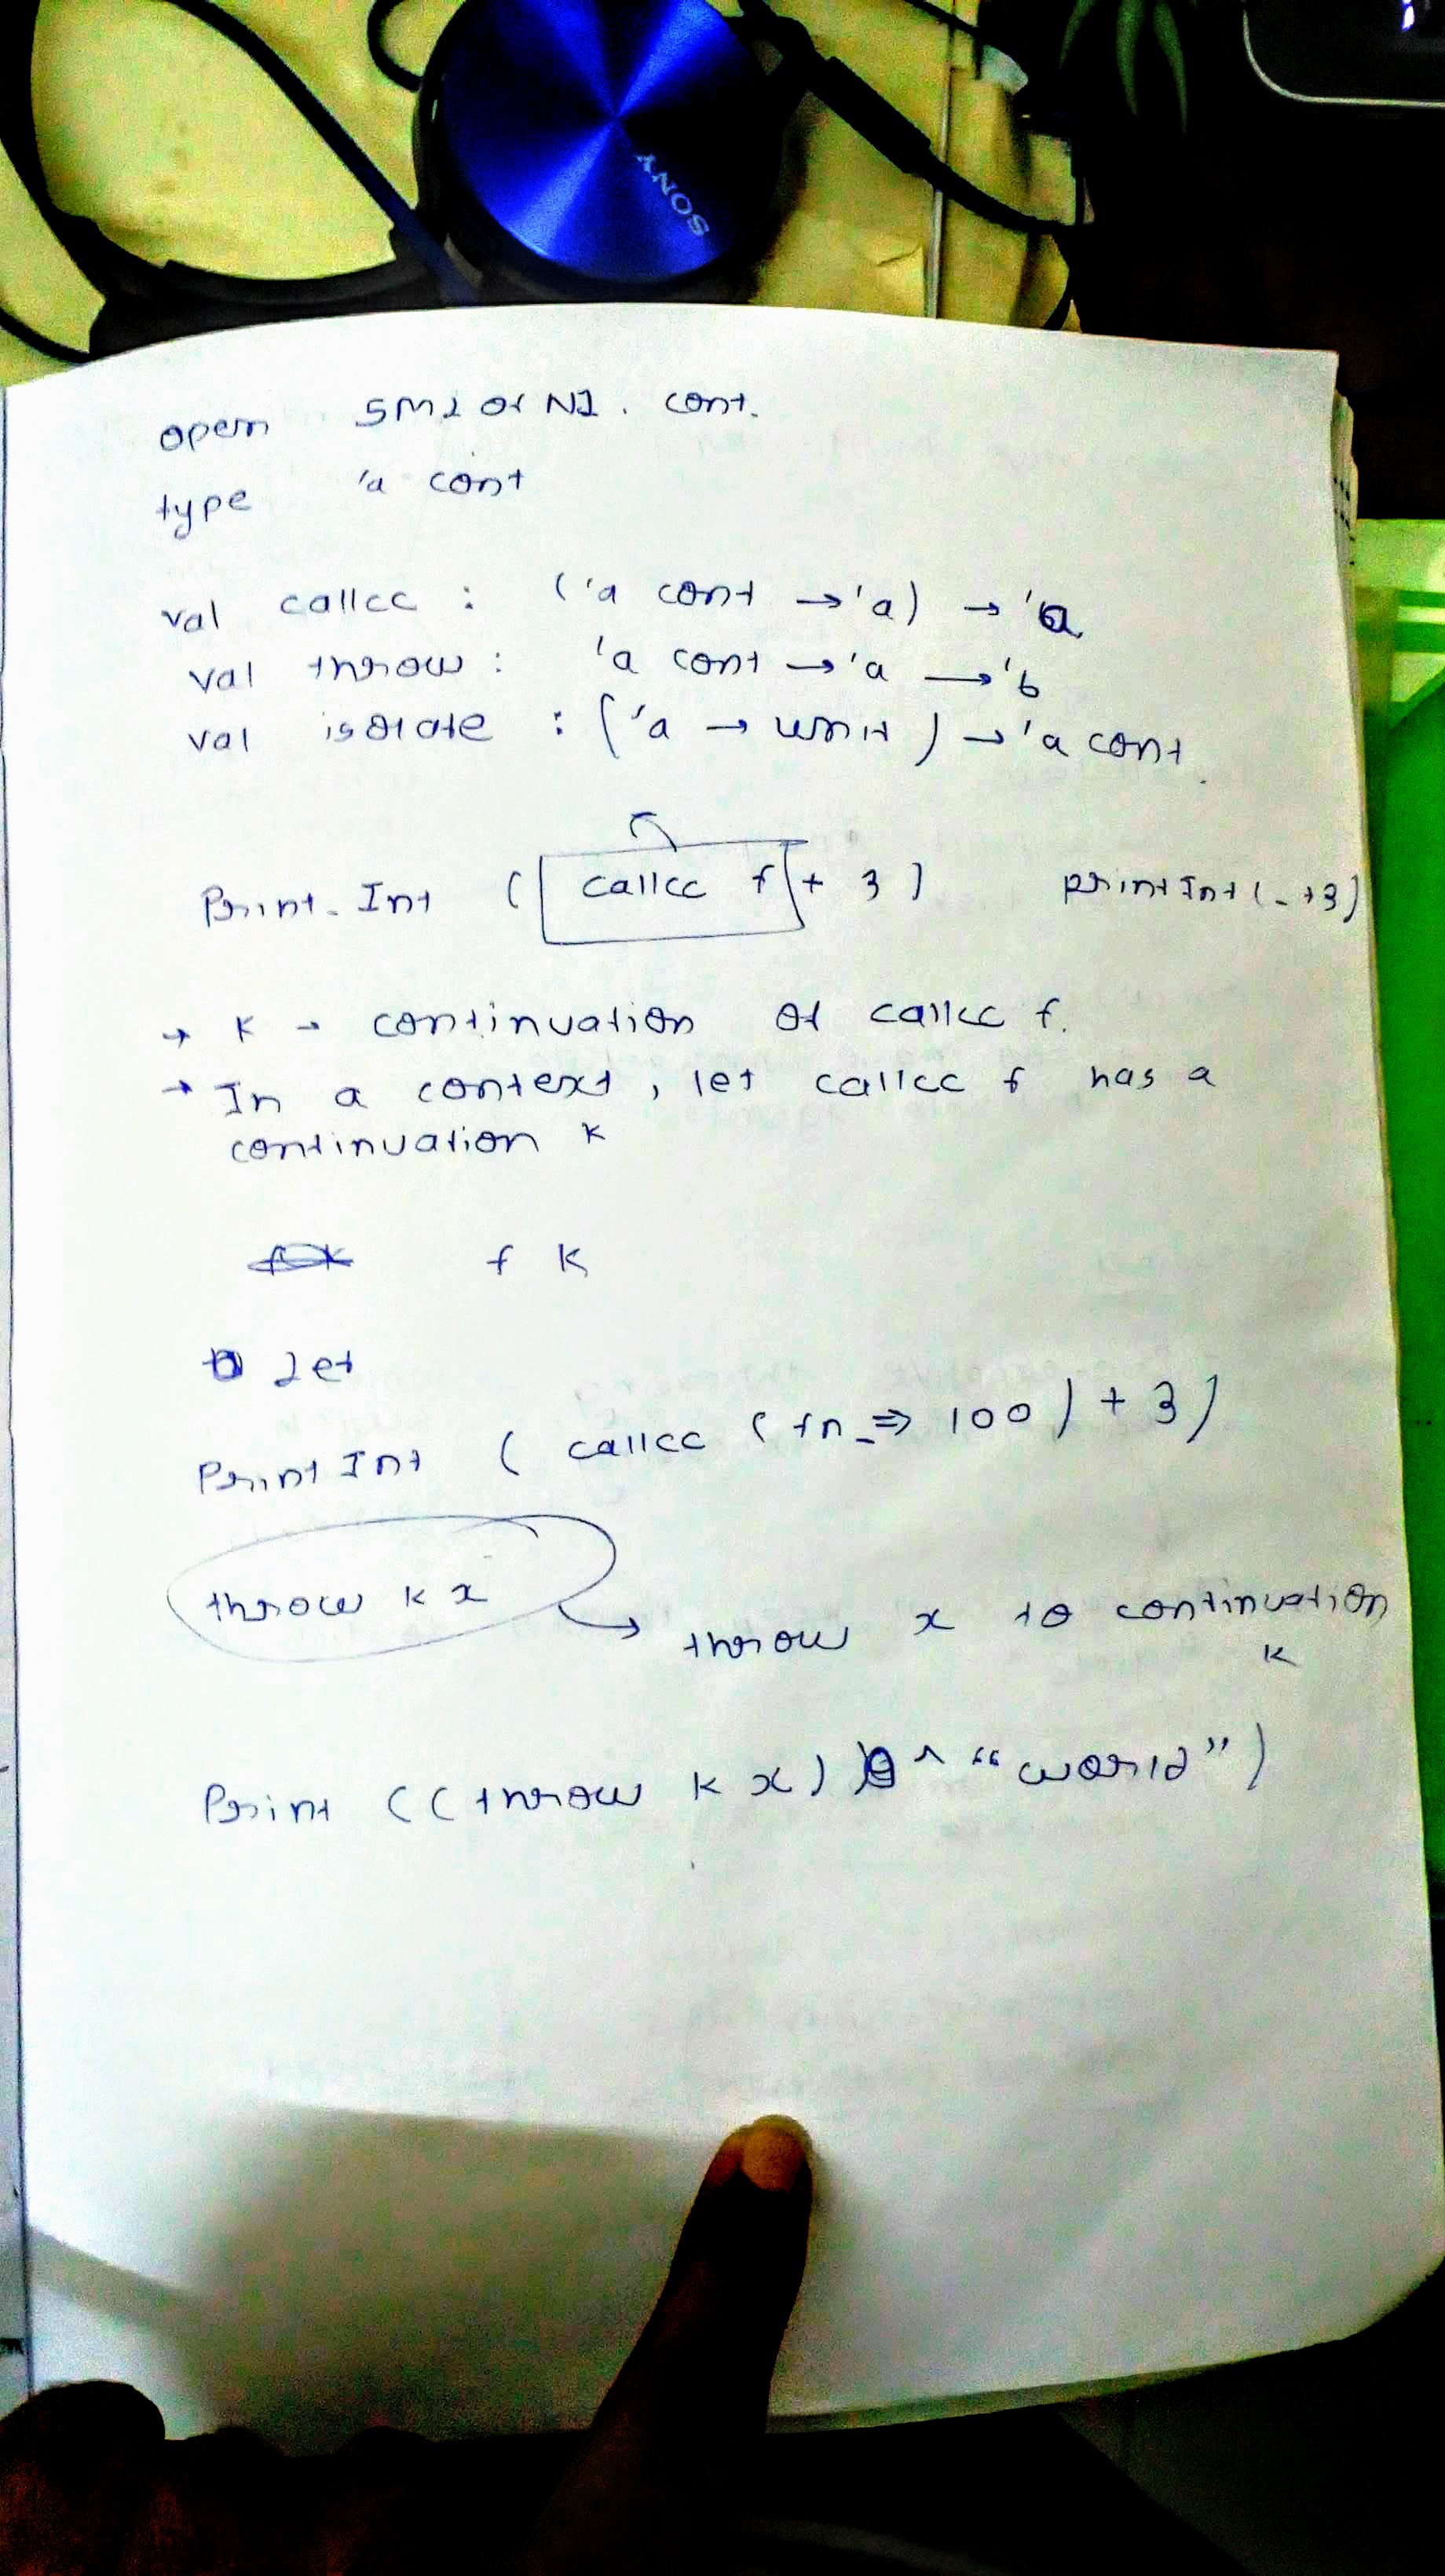 SONY
open SMLofNJ. cont.
type 'a cont
val callcc : ('a cont → 'a) → 'a
val throw : 'a cont → 'a → 'b
val isolate : ('a → unit) → 'a cont.
Print.Int ( callcc f + 3 ) printInt ( _ +3)
→ K - continuation of callcc f.
→ In a context, let callcc f has a
continuation K
f K
let
PrintInt ( callcc ( fn_ ⇒ 100 ) + 3 )
throw k x → throw x to continuation
K
Print ( ( throw k x ) ^ “world” )